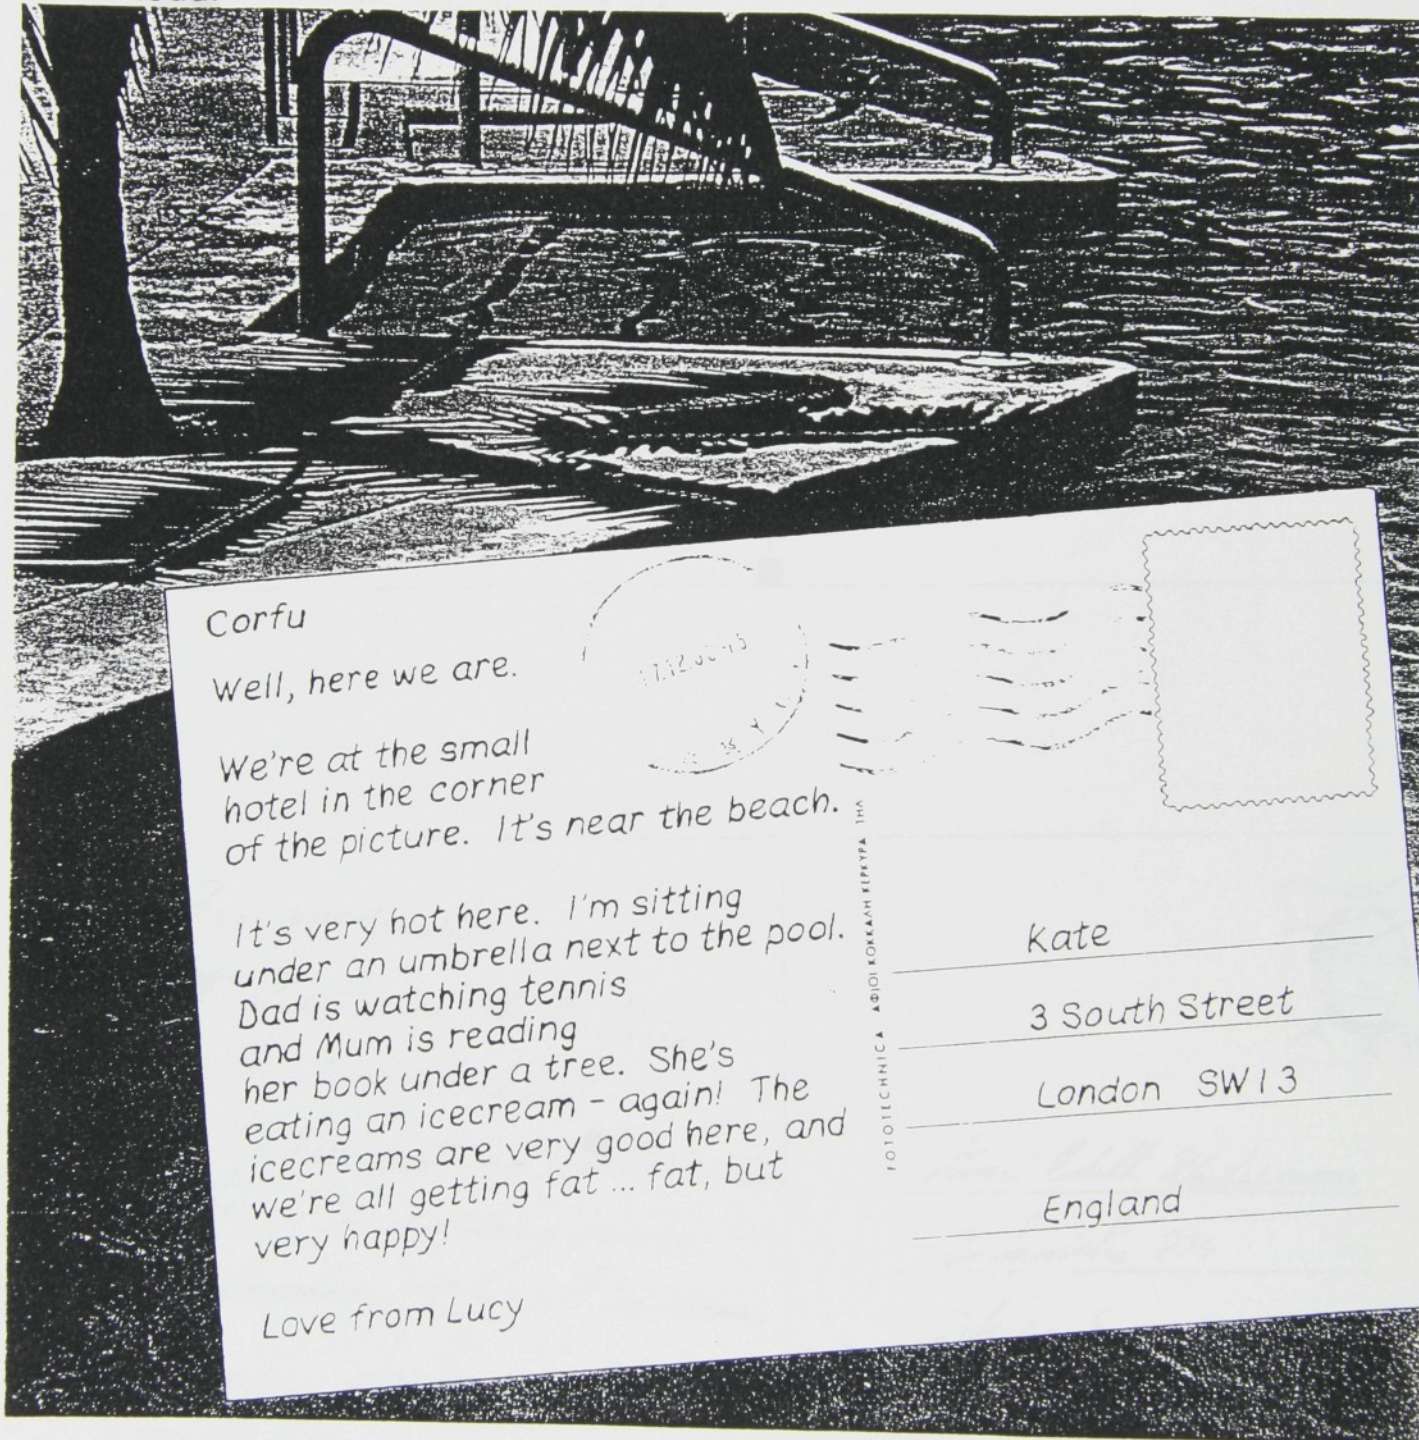 Corfu
Well, here we are.
We're at the small
hotel in the corner
of the picture. It's near the beach.
It's very hot here. I'm sitting
under an umbrella next to the pool.
Dad is watching tennis
and Mum is reading
her book under a tree. She's
eating an icecream - again! The
icecreams are very good here, and
we're all getting fat ... fat, but
very happy!
Love from Lucy
ΑΦΙΟΙ ΚΟΚΚΑΛΗ ΚΕΡΚΥΡΑ ΤΗΛ
Kate
3 South Street
London SW13
England